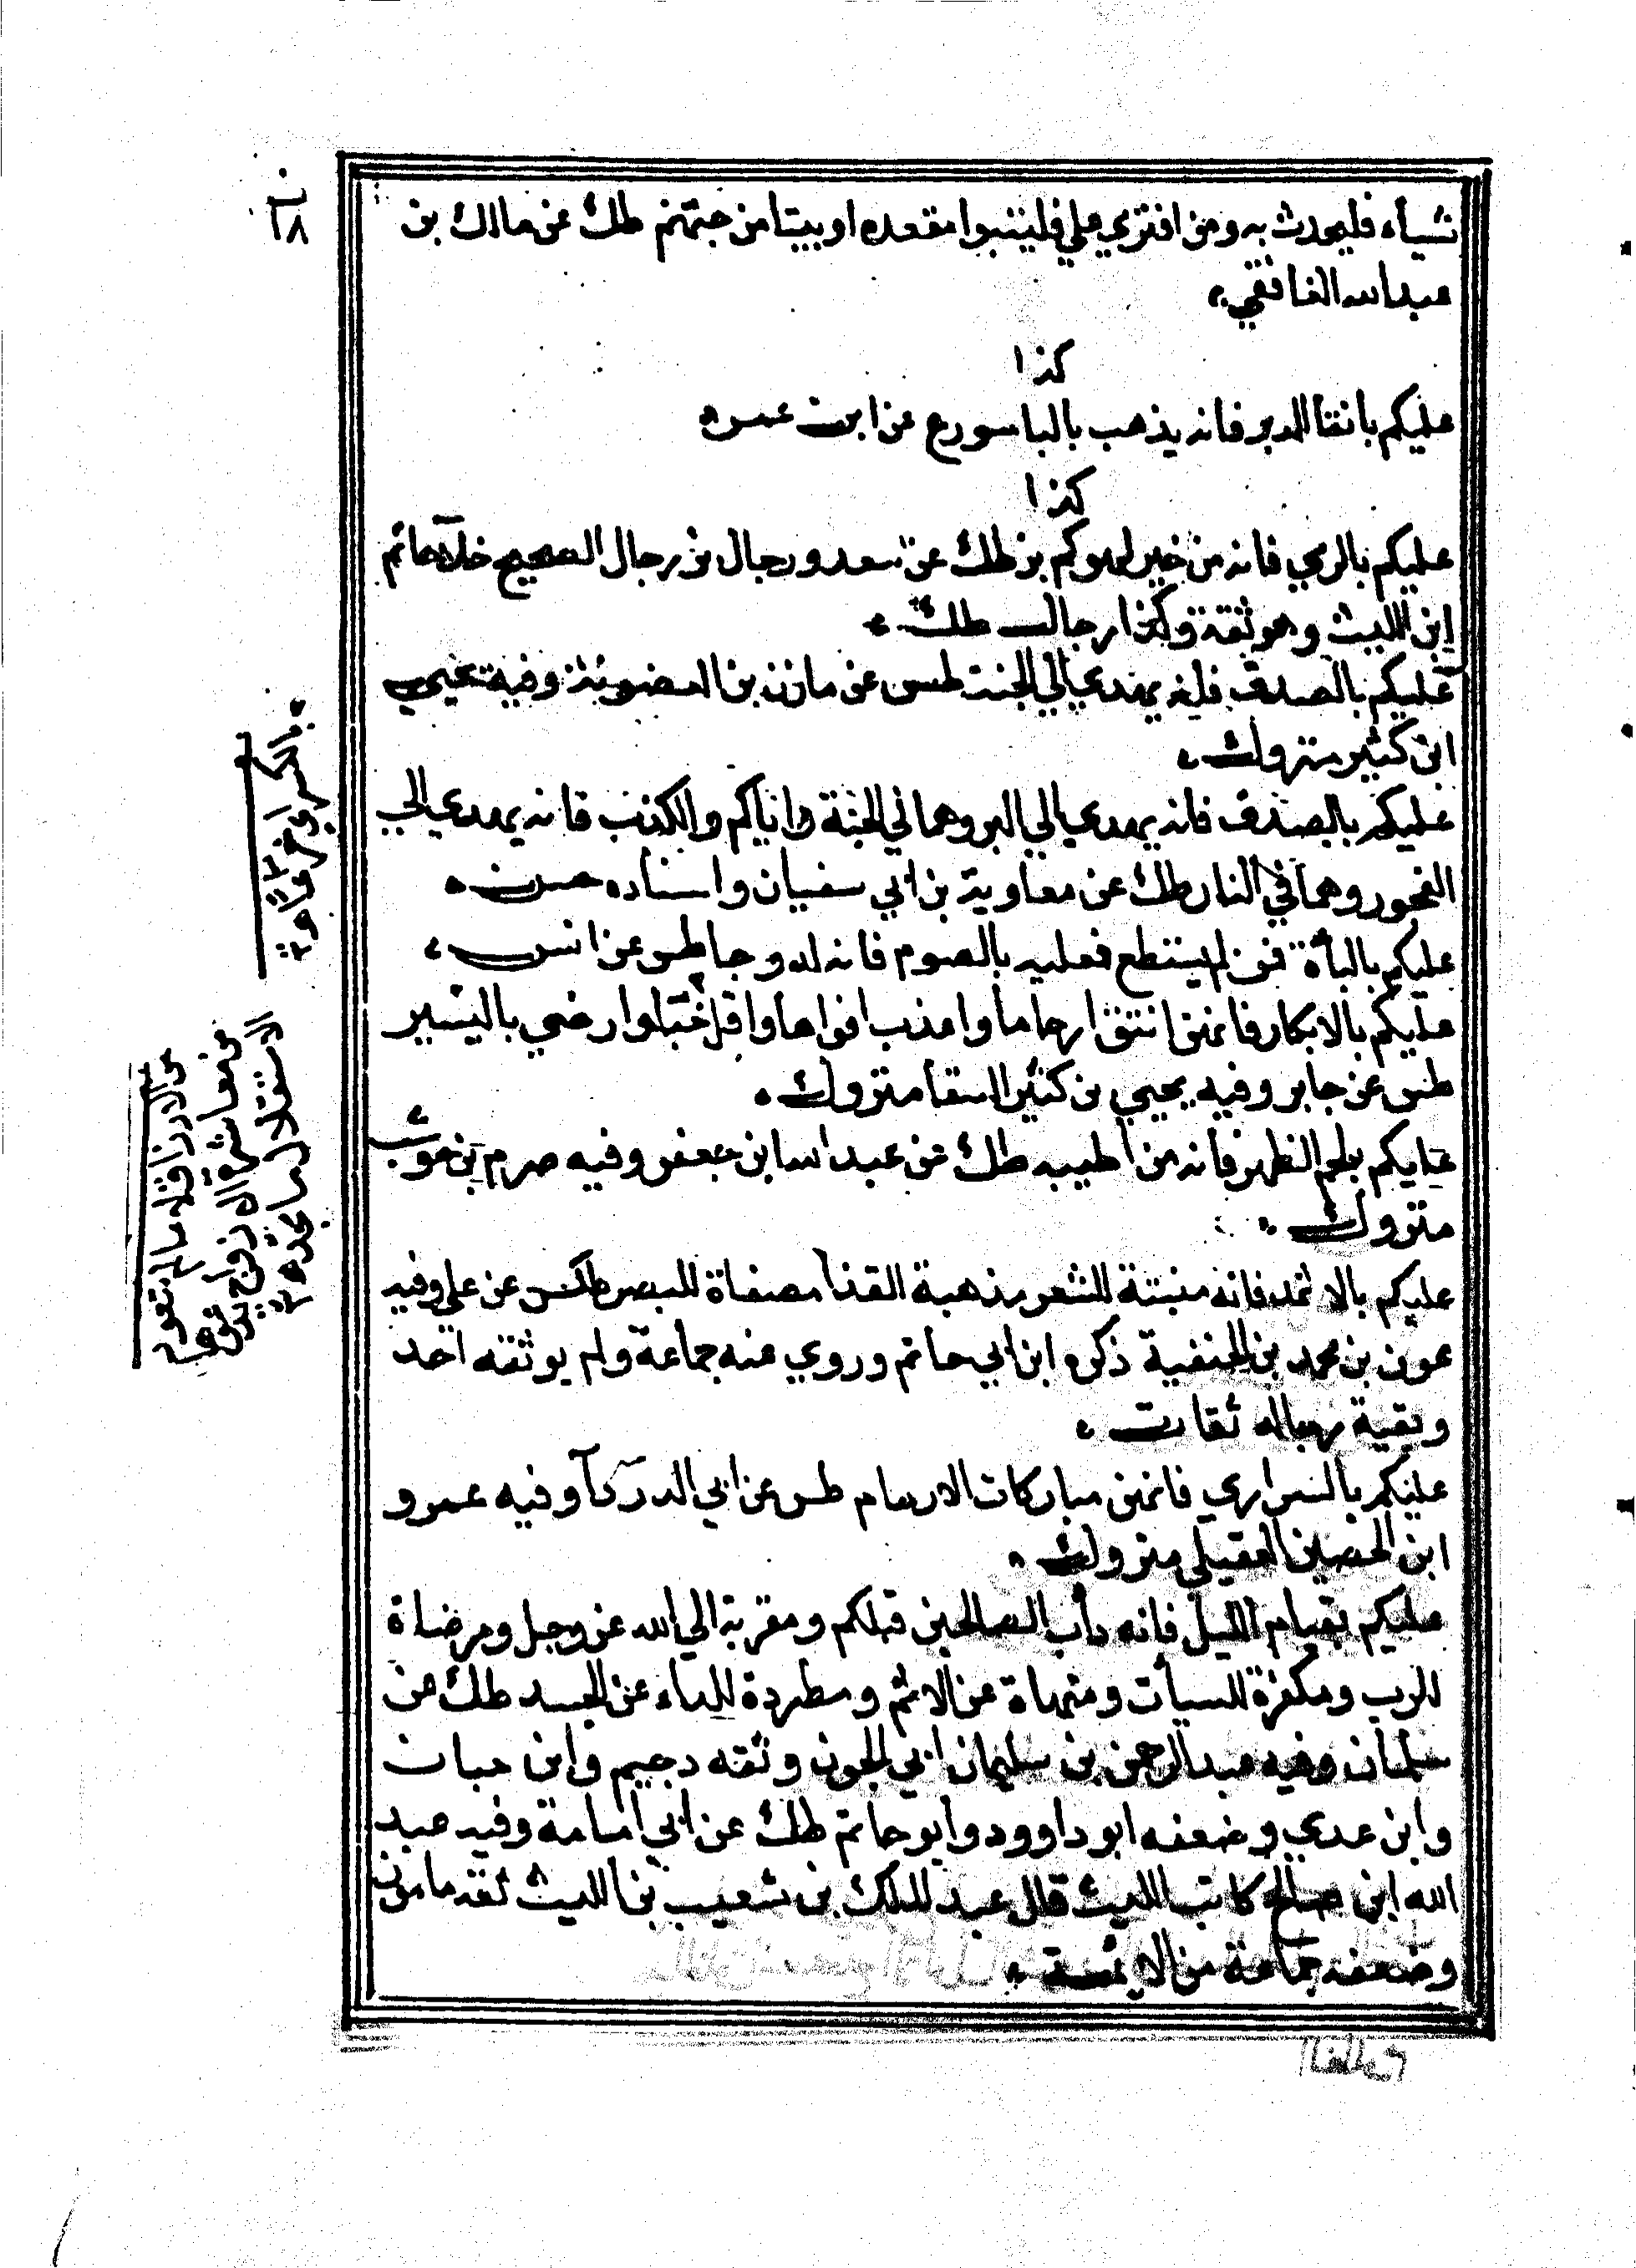 شياء فليحدث به ومن افتري علي فليتبوا مقعده او بيتا من جهنم طك عن مالك بن
عبد الله الغافقي
كذا
عليكم بانقا الدبر فانه يذهب بالباسور ع عن ابن عمر
كذا
عليكم بالرمي فانه من خير لهوكم بز طك عن سعد ورجال بز رجال الصحيح خلا حاتم
ابن الليث وهو ثقة وكذا رجال طك
عليكم بالصدق فانه يهدي الي الجنة طس عن مازن بن الغضوبة وفيه يحيي
ابن كثير متروك
عليكم بالصدق فانه يهدي الي البر وهما في الجنة واياكم والكذب فانه يهدي الي
الفجور وهما في النار طك عن معاوية بن ابي سفيان واسناده حسن
عليكم بالبأة فمن لم يستطع فعليه بالصوم فانه له وجا طس عن انس
عليكم بالابكار فانهن انتق ارحاما واعذب افواها واقل خبا وارضي باليسير
طس عن جابر وفيه يحيي بن كثير السقا متروك
عليكم بلحم الظهر فانه من اطيبه طك عن عبد الله ابن جعفر وفيه صرم بن حوشب
متروك
عليكم بالاثمد فانه منبتة للشعر مذهبة القذا مصفاة للبصر طكس عن علي وفيه
عون بن محمد بن الحنفية ذكره ابن ابي حاتم وروي عنه جماعة ولم يوثقه احد
وبقية رجاله ثقات
عليكم بالسراري فانهن مباركات الارحام طس عن ابي الدردآ وفيه عمرو
ابن الحصين العقيلي متروك
عليكم بقيام الليل فانه دأب الصالحين قبلكم ومقربة الي الله عز وجل ومرضاة
للرب ومكفرة للسيأت ومنهاة عن الاثم ومطردة للداء عن الجسد طك عن
سلمان وفيه عبد الرحمن بن سليمان ابي الجون وثقه دحيم وابن حبان
وابن عدي وضعفه ابو داوود وابو حاتم طك عن ابي امامة وفيه عبد
الله ابن صالح كاتب الليث قال عبد الملك بن شعيب بن الليث ثقة مامون
وضعفه جماعة من الايمة